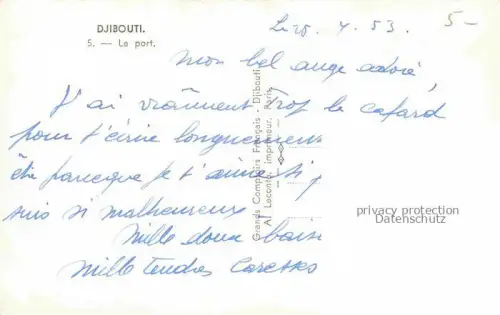 DJIBOUTI.
5. — Le port.
Le 25. 4. 53.
5-
mon bel ange adoré,
J'ai vraiment trop le cafard
pour t'écrire longuement
être parceque je t'aime si
suis si malheureux
mille doux baisers
mille tendres caresses
Grands Comptoirs Français - Djibouti
A. Leconte, imprimeur, Paris
privacy protection
Datenschutz